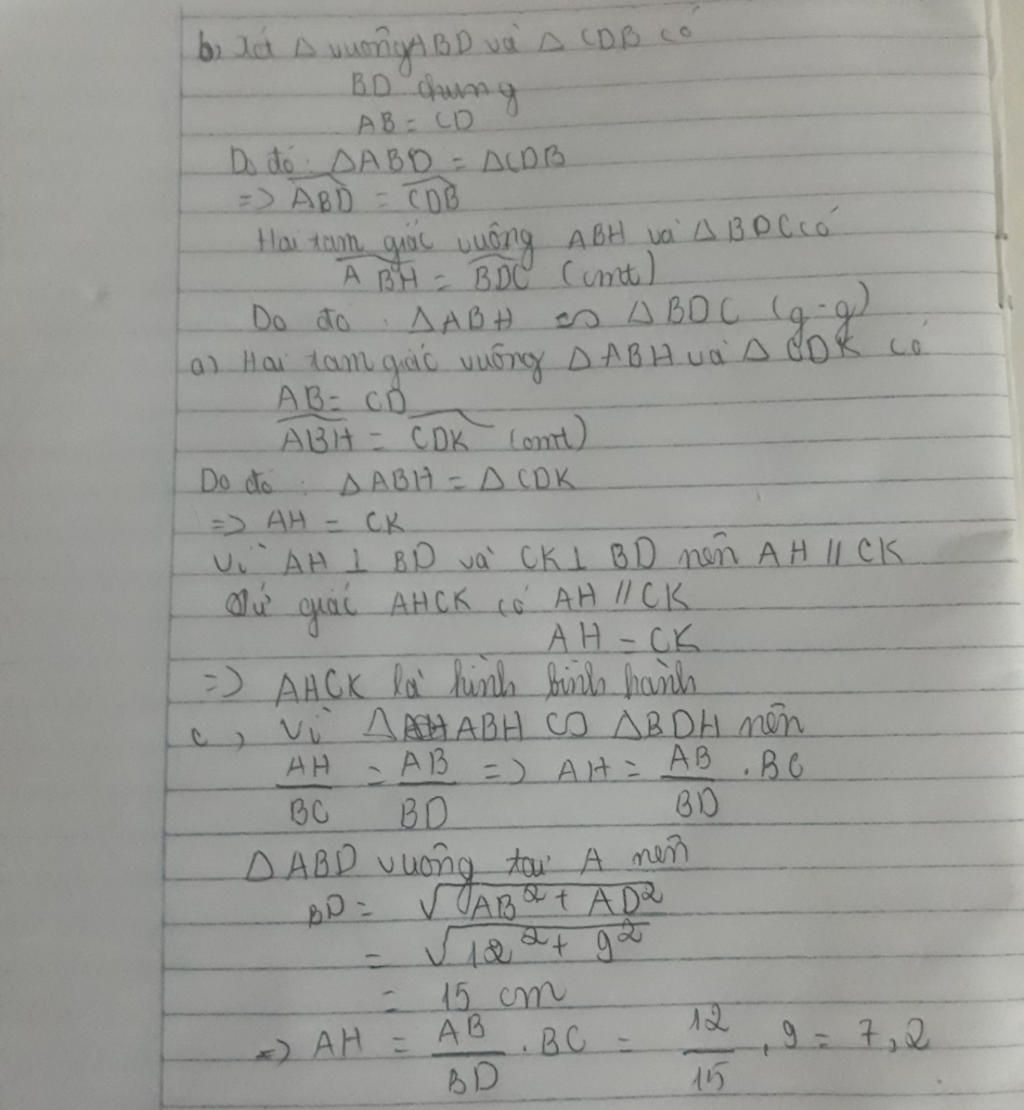 b, Xét Δ vuông ABD và Δ CDB có
BD chung
AB = CD
Do đó: ΔABD = ΔCDB
=> ABD = CDB
Hai tam giác vuông ABH và Δ BDC có
ABH = BDC (cmt)
Do đó: ΔABH ∽ ΔBDC (g-g)
a) Hai tam giác vuông ΔABH và Δ CDK có
AB = CD
ABH = CDK (cmt)
Do đó: ΔABH = Δ CDK
=> AH = CK
Vì AH ⊥ BD và CK ⊥ BD nên AH // CK
Tứ giác AHCK có AH // CK
AH = CK
=> AHCK là hình bình hành
c, Vì Δ ABH ∽ ΔBDH nên
AH/BC = AB/BD => AH = AB/BD . BC
ΔABD vuông tại A nên
BD = √AB² + AD²
= √12² + 9²
= 15 cm
=> AH = AB/BD . BC = 12/15 . 9 = 7,2